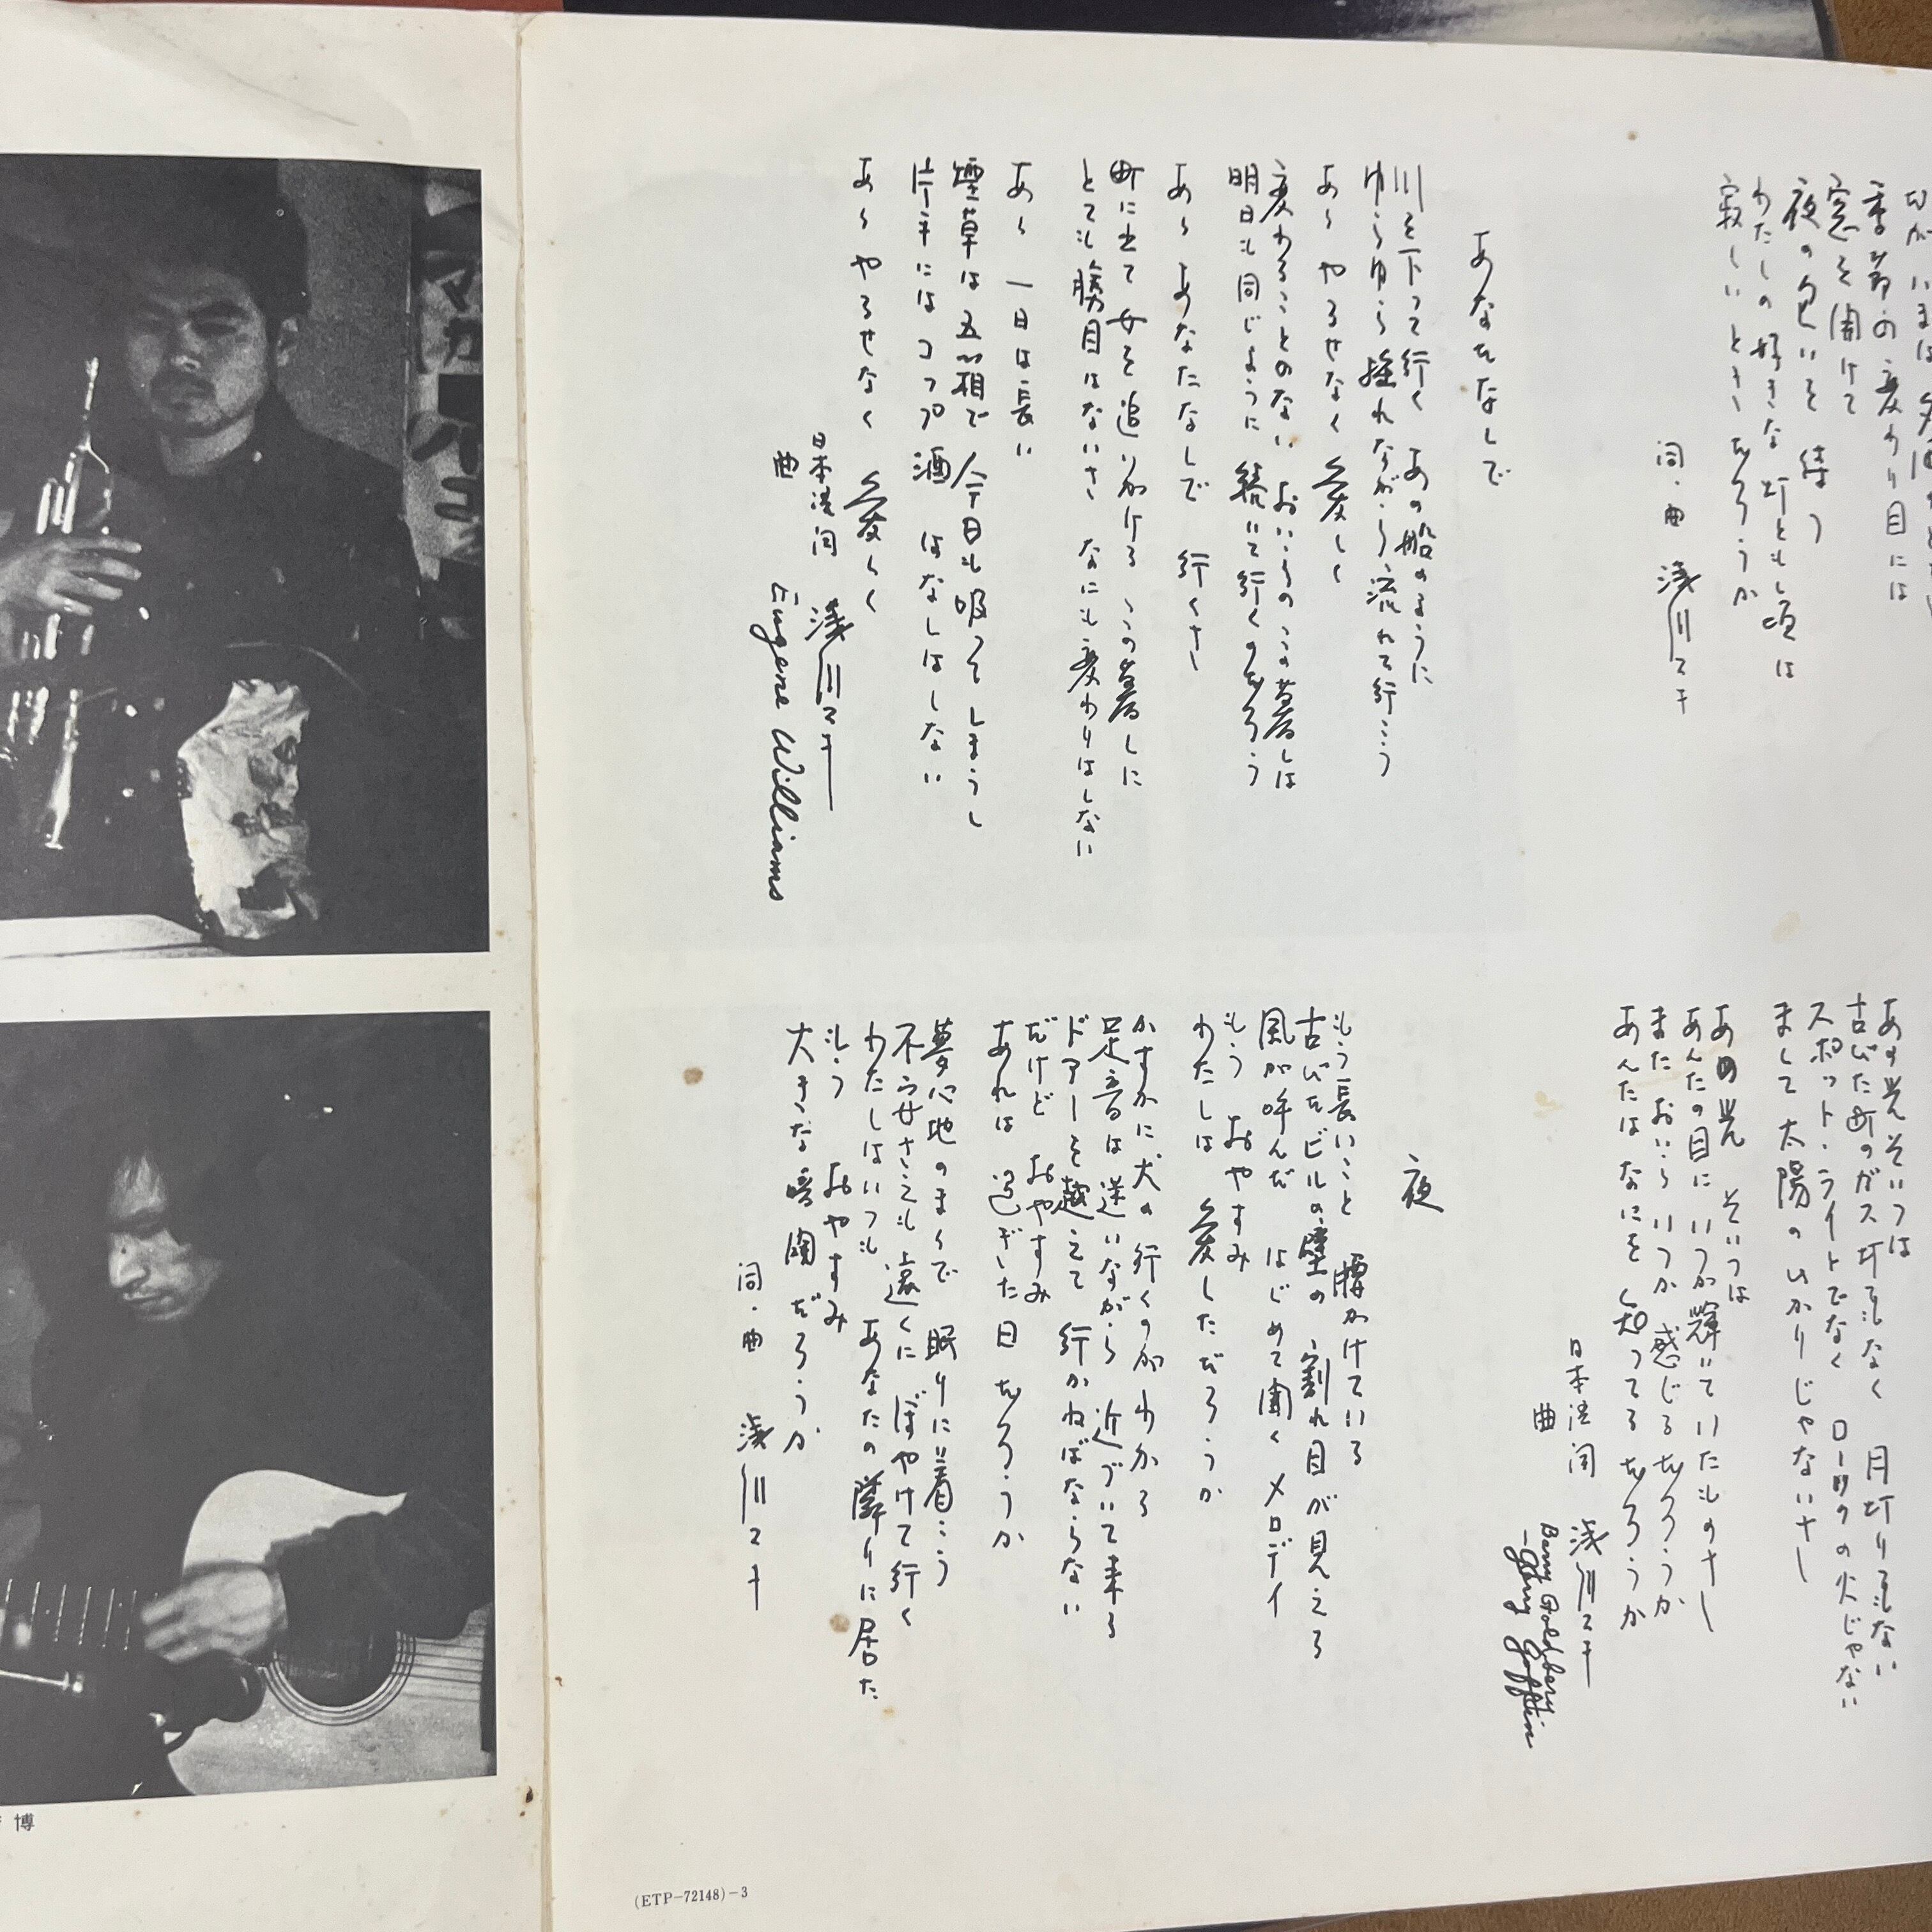 季節の変わり目には
窓を開けて
夜の匂いを 待つ
わたしの好きな 灯ともし頃は
寂しいときだろうか
詞・曲 浅川マキ
あなたなしで
川を下って行く あの船のように
ゆらゆら揺れながら 流れて行こう
あゝ やるせなく 愛しく
変わることのない おいらの この暮しは
明日も同じように 続いて行くのだろう
あゝ あなたなしで 行くさ
町に出て 女を追いかける この暮しに
とても勝目はないさ なにも変わりはしない
あゝ 一日は長い
煙草は五箱で 今日も吸って しまうし
片手には コップ酒 はなしはしない
あゝ やるせなく 愛しく
日本語詞 浅川マキ
曲 Eugene Williams
あの光 そいつは
古びた町のガス灯でもなく 月灯りでもない
スポット・ライトでなく ローソクの火じゃない
まして 太陽の ひかりじゃないさ
あの光 そいつは
あんたの目に いつか輝いていたものさ
またおいら いつか感じるだろうか
あんたはなにを 知ってるだろうか
日本語詞 浅川マキ
曲 Barry Goldberg
-Gerry Goffin
夜
もう長いこと 腰かけている
古びたビルの壁の 割れ目が見える
風が呼んだ はじめて聞く メロディ
もう おやすみ
わたしは 愛しただろうか
かすかに 犬の 行くのがわかる
足音は 迷いながら 近づいて来る
ドアーを越えて 行かねばならない
だけど おやすみ
あれは 過ぎた日 だろうか
夢心地のまゝで 眠りに着こう
不安さえも 遠くに ぼやけて行く
わたしはいつも あなたの隣りに居た
もう おやすみ
大きな暗闇 だろうか
詞・曲 浅川マキ
博
(ETP-72148)-3